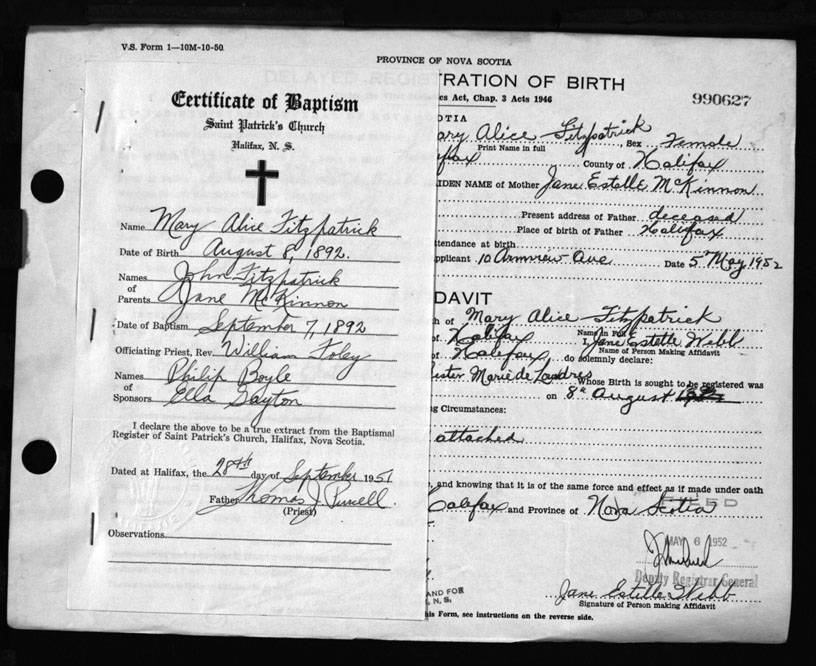 V.S. Form 1—10M-10-50
Certificate of Baptism
Saint Patrick's Church
Halifax, N. S.
Name Mary Alice Fitzpatrick
Date of Birth August 8, 1892.
Names of Parents John Fitzpatrick
Jane McKinnon
Date of Baptism September 7, 1892
Officiating Priest, Rev. William Foley
Names of Sponsors Philip Boyle
Ella Gayton
I declare the above to be a true extract from the Baptismal
Register of Saint Patrick's Church, Halifax, Nova Scotia.
Dated at Halifax, the 28th day of September 1951
Father Thomas J.
(Priest)
Observations
PROVINCE OF NOVA SCOTIA
TRATION OF BIRTH
cs Act, Chap. 3 Acts 1946
990627
OTIA
ary Alice Fitzpatrick Sex Female
Print Name in full
fax County of Halifax
IDEN NAME of Mother Jane Estelle McKinnon
Present address of Father deceased
Place of birth of Father Halifax
ttendance at birth
pplicant 10 Armview Ave Date 5th May 1952
DAVIT
h of Mary Alice Fitzpatrick
Name in Full
of Halifax I, Jane Estelle Webb
Name of Person Making Affidavit
of Halifax, do solemnly declare:
ister Marie de Lourdes Whose Birth is sought to be registered was
on 8th August
g Circumstances:
attached
e, and knowing that it is of the same force and effect as if made under oath
Halifax and Province of Nova Scotia
MAY 6 1952
Deputy Registrar General
AND FOR
N. S.
Jane Estelle Webb
Signature of Person making Affidavit
his Form, see instructions on the reverse side.